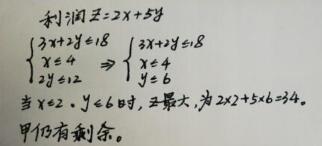 利润Z=2x+5y
{3x+2y≤18 {3x+2y≤18
{x≤4 ⇒ {x≤4
{2y≤12 {y≤6
当x≤2．y≤6时，Z最大，为2×2+5×6=34。
甲仍有剩余。